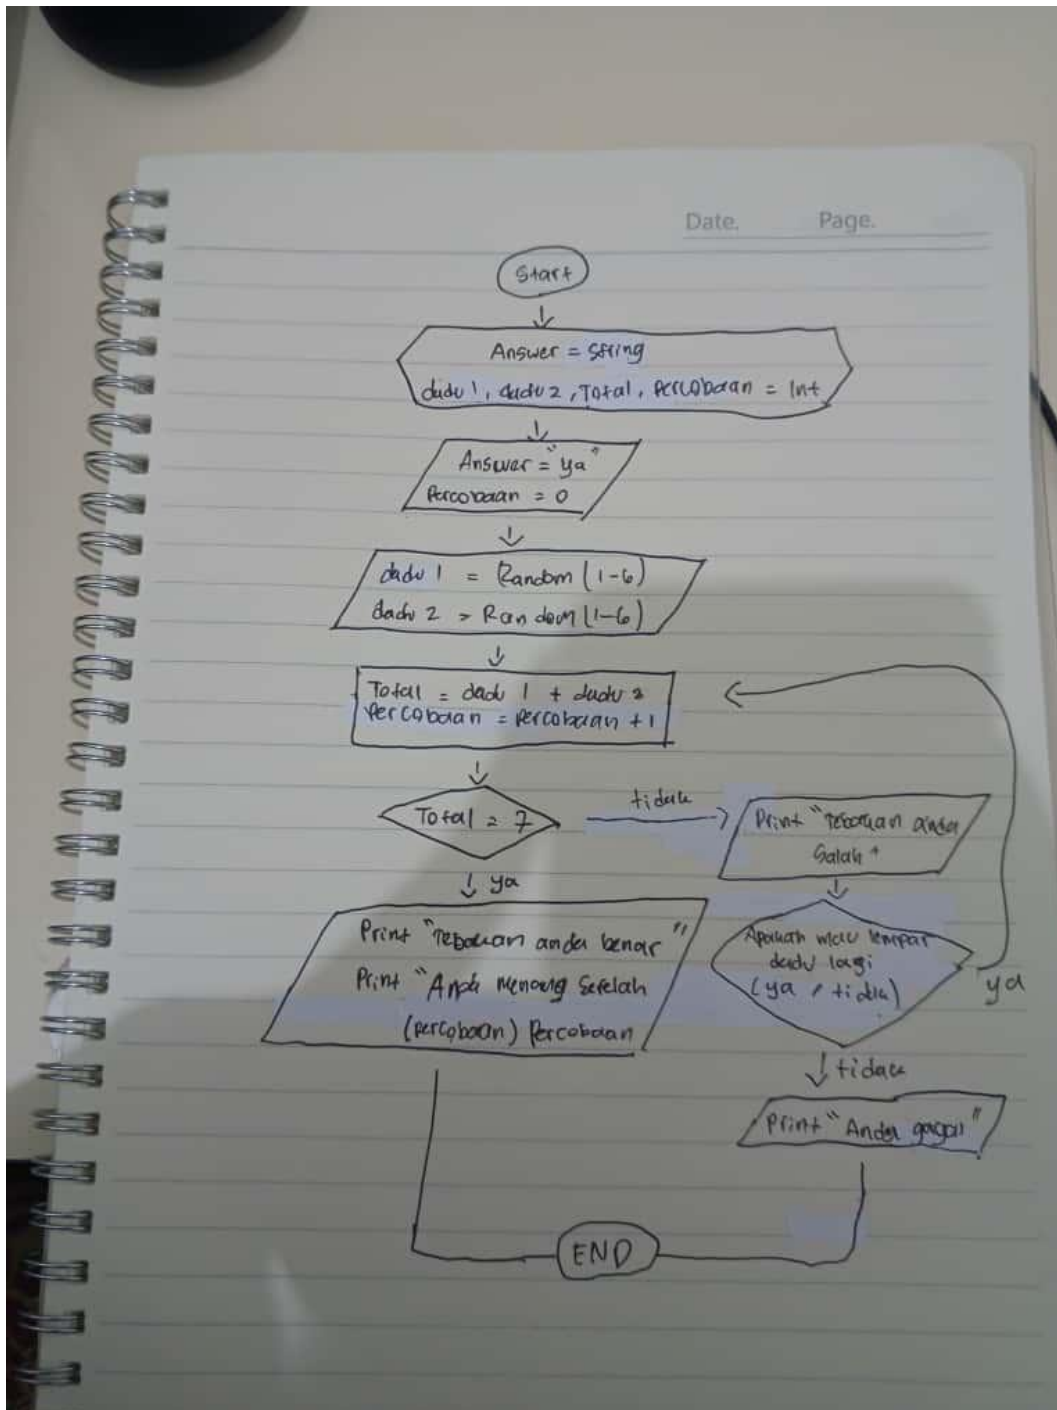 Date. Page.
Start
Answer = String
dadu 1, dadu 2, Total, Percobaan = Int
Answer = "ya"
Percobaan = 0
dadu 1 = Random (1-6)
dadu 2 = Random (1-6)
Total = dadu 1 + dadu 2
Percobaan = Percobaan + 1
Total = 7
tidak
Print "Tebakan anda
Salah "
ya
Print "Tebakan anda benar"
Print "Anda menang Setelah
(percobaan) Percobaan
Apakah mau lempar
dadu lagi
(ya / tidak)
ya
tidak
Print "Anda gagal"
END